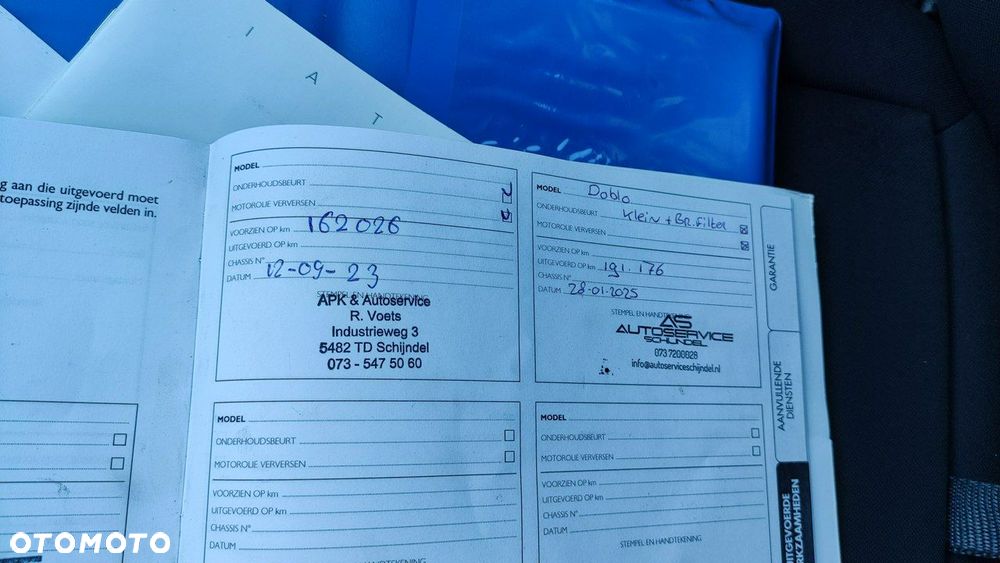 I
A
T
g aan die uitgevoerd moet
toepassing zijnde velden in.
MODEL
ONDERHOUDSBEURT
MOTOROLIE VERVERSEN
VOORZIEN OP km 162026
UITGEVOERD OP km
CHASSIS N°
DATUM 12-09-23
STEMPEL EN HANDTEKENING
APK & Autoservice
R. Voets
Industrieweg 3
5482 TD Schijndel
073 - 547 50 60
MODEL Doblo
ONDERHOUDSBEURT Klein + Br. Filter
MOTOROLIE VERVERSEN
VOORZIEN OP km
UITGEVOERD OP km 191.176
CHASSIS N°
DATUM 28-01-2025
STEMPEL EN HANDTEKENING
AS
AUTOSERVICE
SCHIJNDEL
073 7200026
info@autoserviceschijndel.nl
MODEL
ONDERHOUDSBEURT
MOTOROLIE VERVERSEN
VOORZIEN OP km
UITGEVOERD OP km
CHASSIS N°
DATUM
STEMPEL EN HANDTEKENING
MODEL
ONDERHOUDSBEURT
MOTOROLIE VERVERSEN
VOORZIEN OP km
UITGEVOERD OP km
CHASSIS N°
DATUM
STEMPEL EN HANDTEKENING
GARANTIE
AANVULLENDE
DIENSTEN
UITGEVOERDE
RKZAAMHEDEN
OTOMOTO